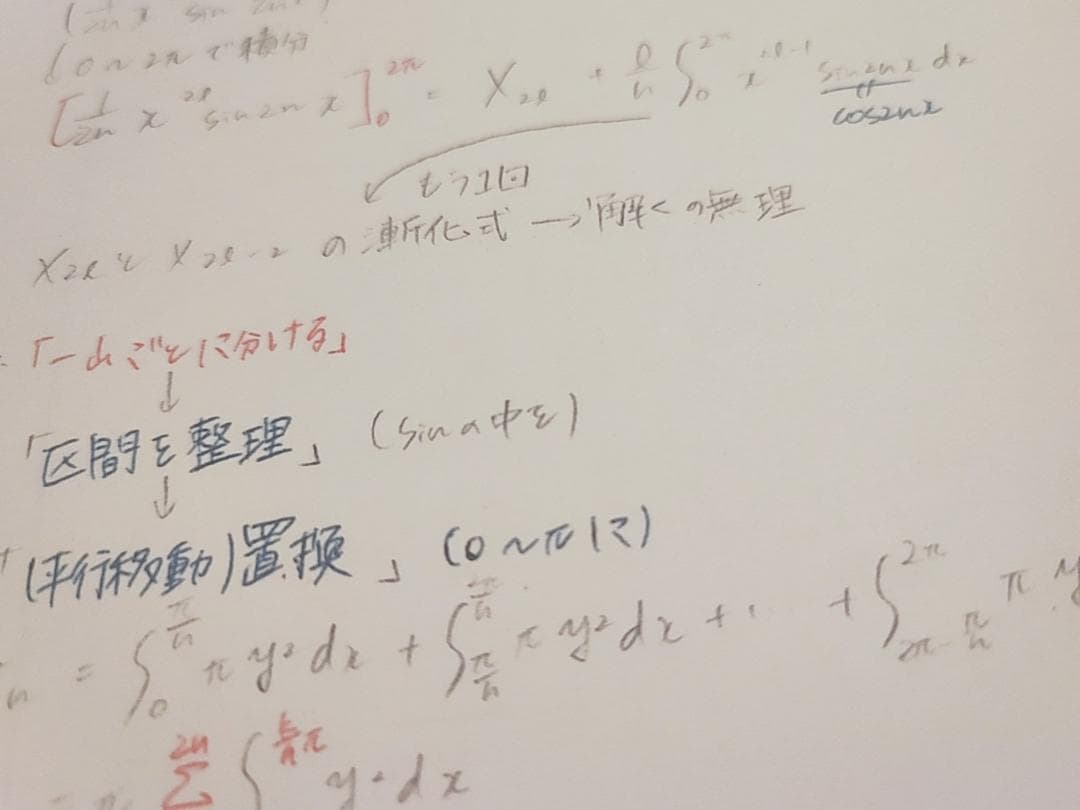 0〜2πで積分
[1/2n x^2l sin2nx]_0^2π = X_2l + l/n ∫_0^2π x^2l-1 sin2nx dx
cos2nx
もう1回
X_2lとX_2l-2の漸化式→解くの無理
「一山ごとに分ける」
↓
「区間を整理」(sinの中を)
↓
「(平行移動)置換」(0〜πに)
n = ∫_0^π/n πy²dx + ∫_π/n^2π/n πy²dx + … + ∫_2π-π/n^2π πy
2n Σ ∫^k/n π y²dx